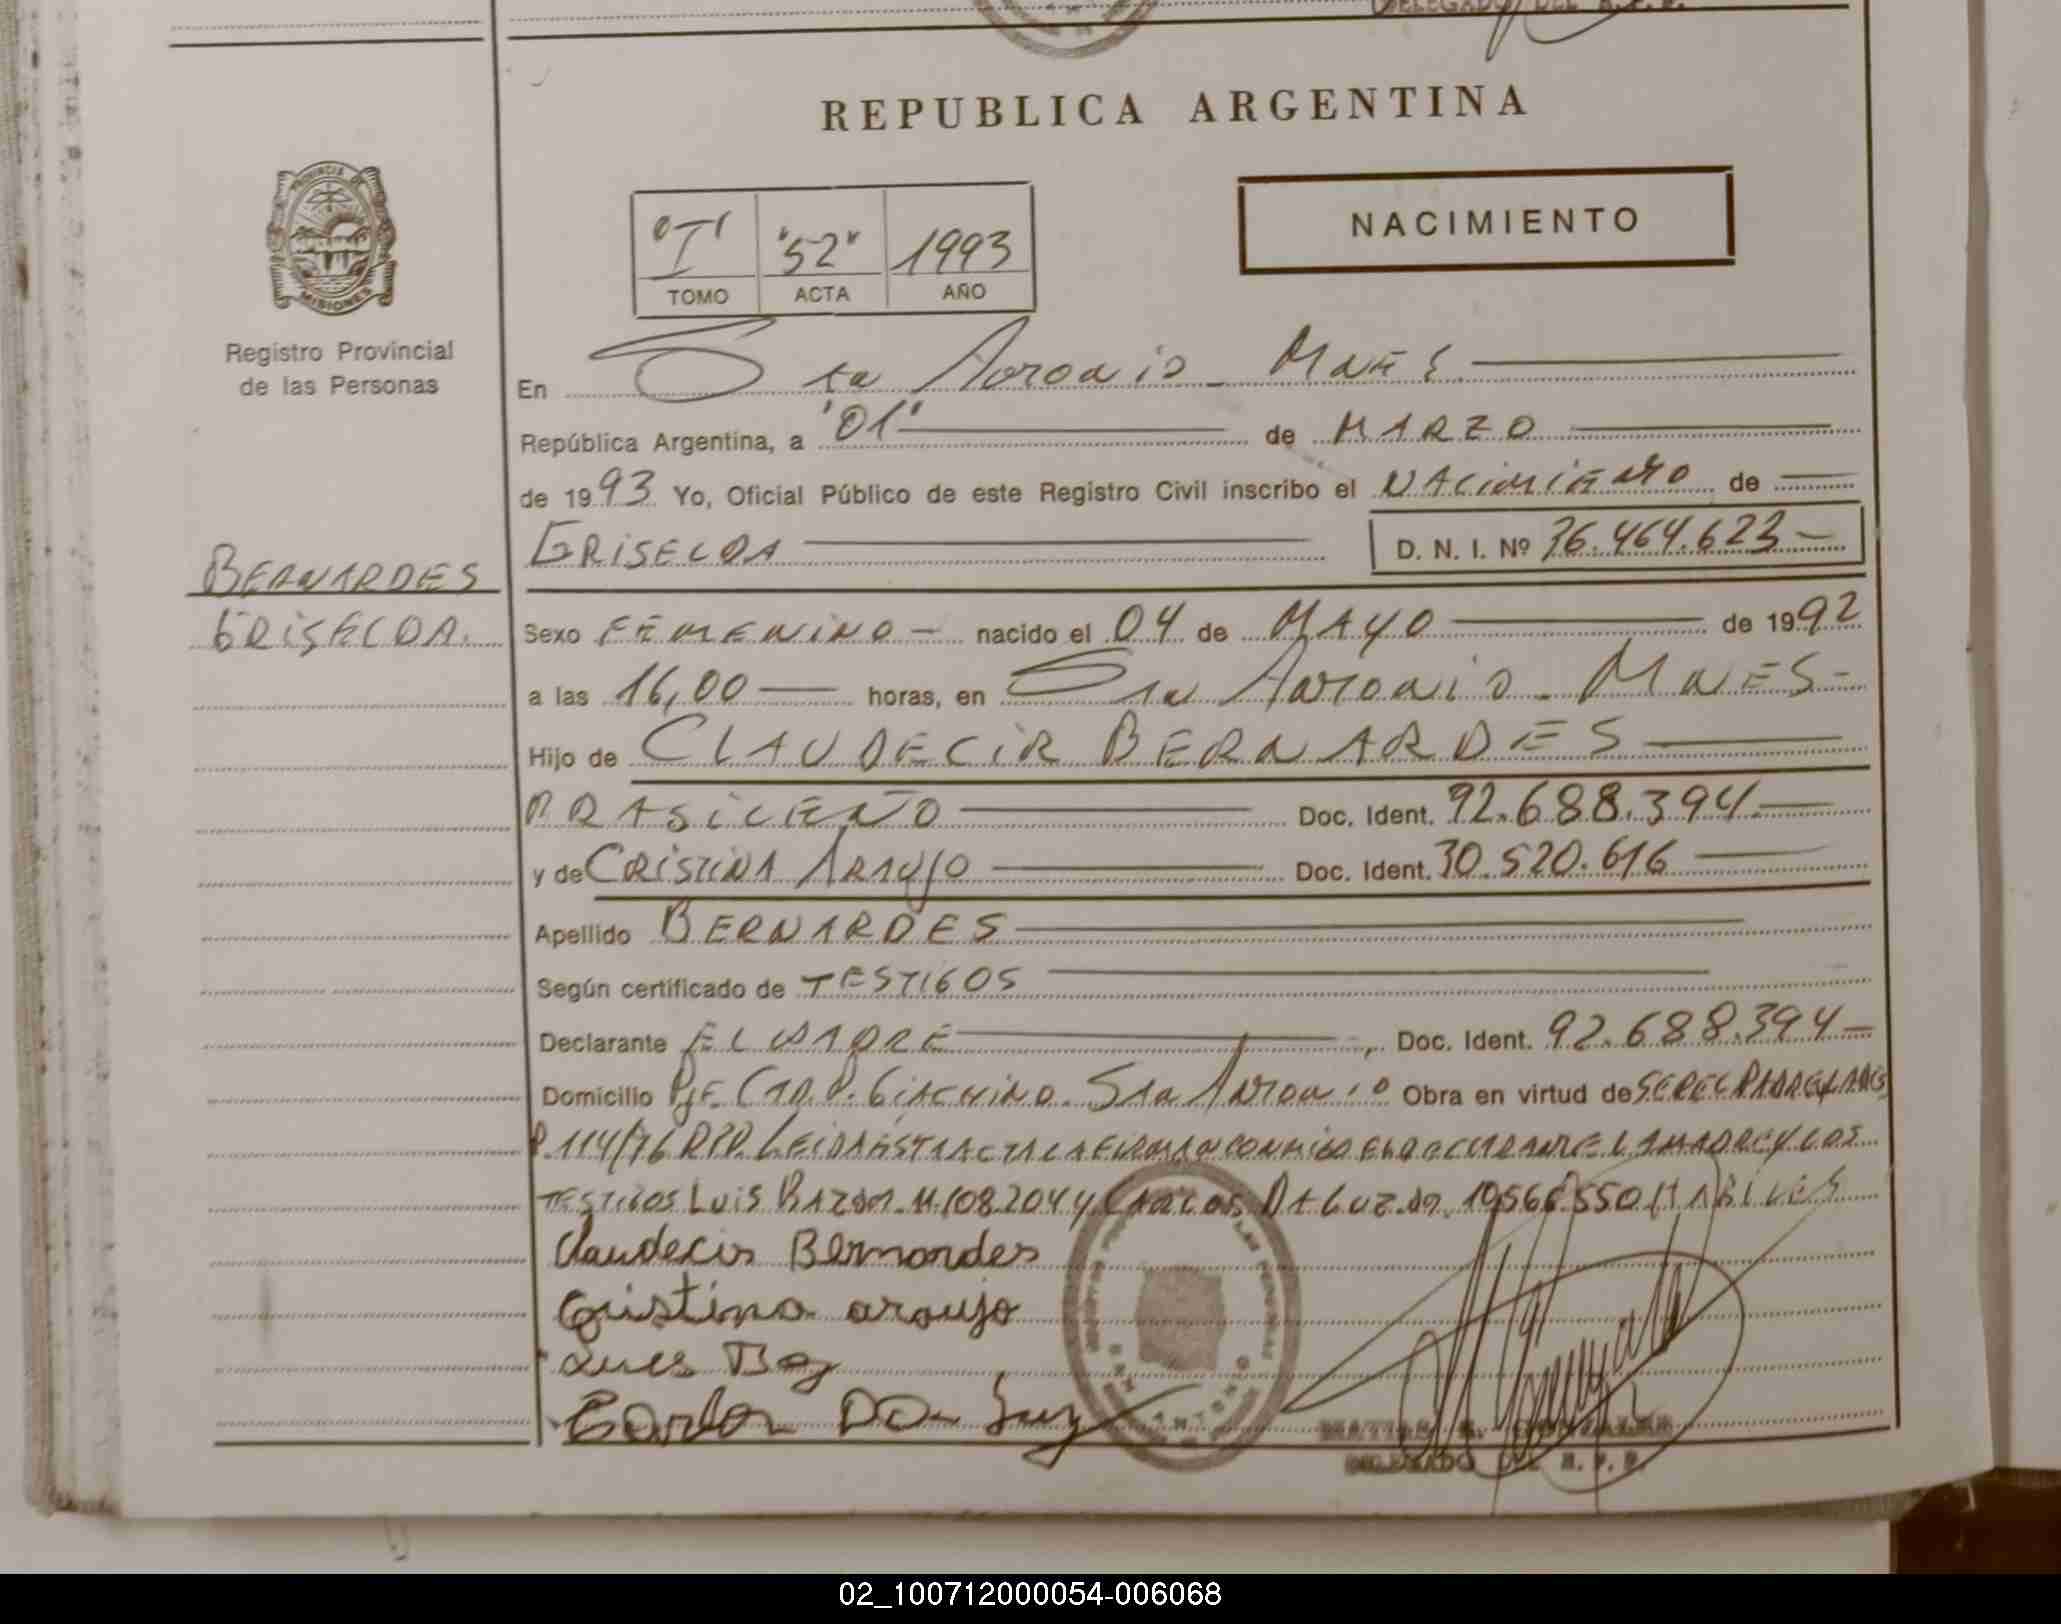 DELEGADO DEL R. P. P.
REPUBLICA ARGENTINA
PROVINCIA DE
MISIONES
Registro Provincial
de las Personas
"I" "52" 1993
TOMO ACTA AÑO
NACIMIENTO
En San Antonio - Mnes
República Argentina, a "01" de MARZO
de 1993 Yo, Oficial Público de este Registro Civil inscribo el NACIMIENTO de
GRISELDA D. N. I. Nº 36.464.623
BERNARDES
GRISELDA.
Sexo FEMENINO nacido el 04 de MAYO de 1992
a las 16,00 horas, en San Antonio - MNES
Hijo de CLAUDECIR BERNARDES
BRASILEÑO Doc. Ident. 92.688.394
y de CRISTINA ARAUJO Doc. Ident. 30.520.616
Apellido BERNARDES
Según certificado de TESTIGOS
Declarante EL PADRE, Doc. Ident. 92.688.394
Domicilio Pje. Cap. P. Giachino. San Antonio Obra en virtud de
114/76 RPP. LEIDA ESTA ACTA LA FIRMAN CONMIGO EL DECLARANTE LA MADRE Y LOS
TESTIGOS LUIS BAZAN. 11.108.204 y CARLOS DA LUZ. 10566550 HABILES
Claudecir Bernardes
Cristina araujo
Carlos Da Luz
SAN ANTONIO
MATIAS R. GONZALEZ
DELEGADO DEL R. P. P.
02_100712000054-006068